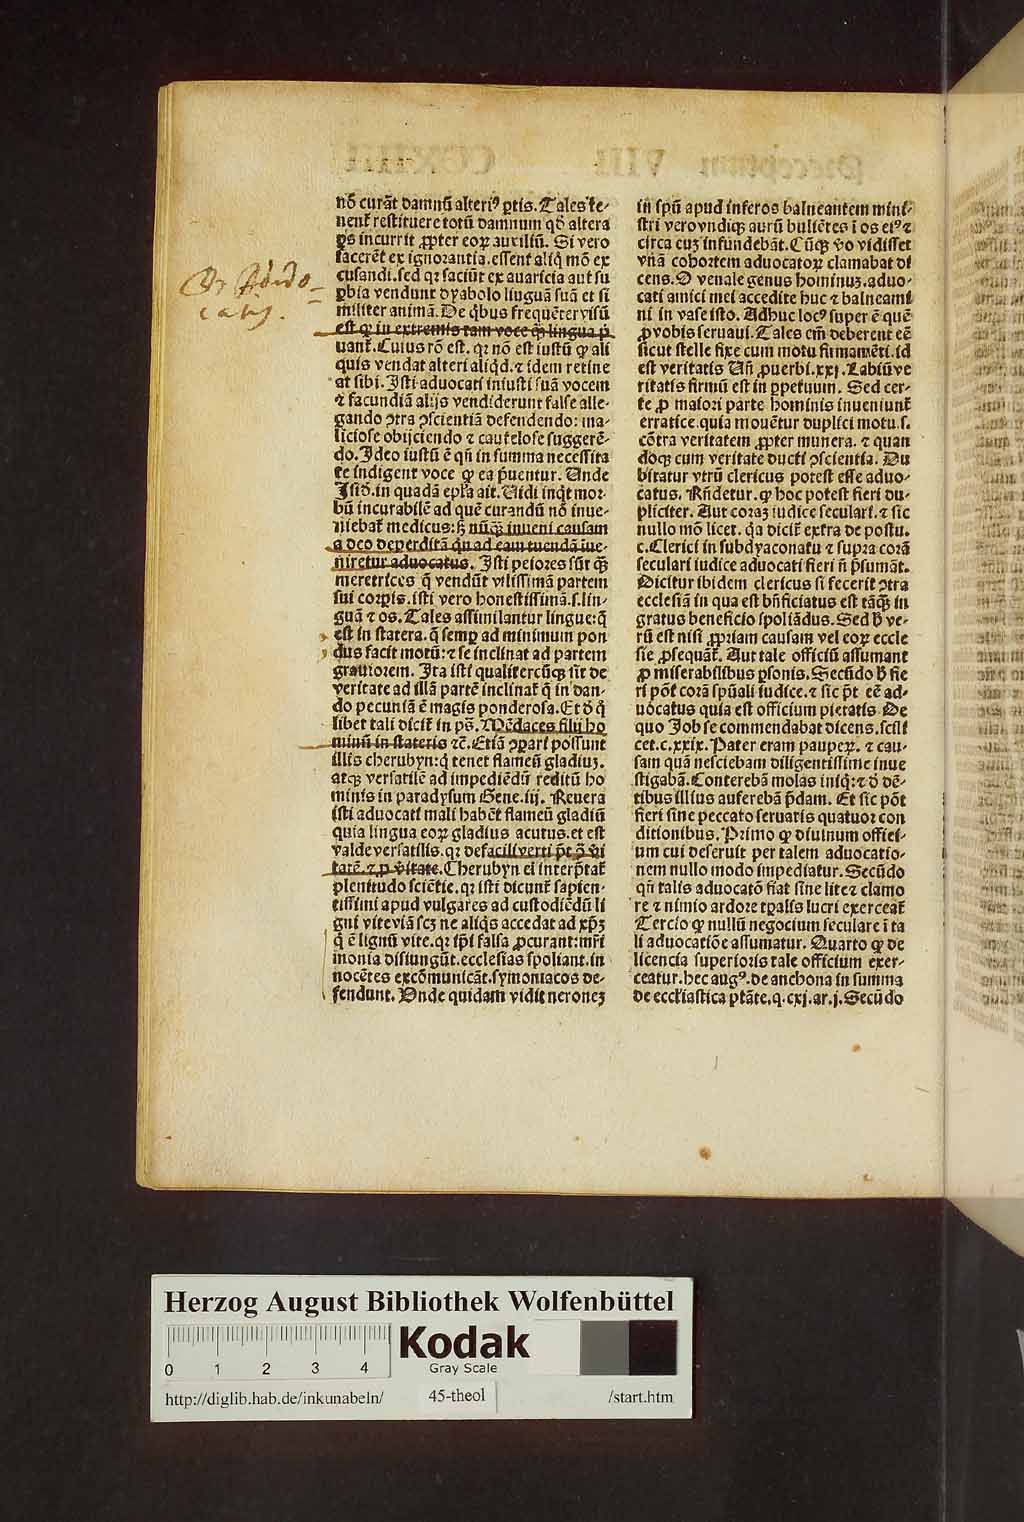 nō curāt damnū alteriꝰ ꝑtis. Tales te-
nent̄ restituere totū damnum qđ altera
ꝑs incurrit ꝓpter eoꝝ auxiliū. Si vero
facerēt ex ignorantia. essent aliq̇ mō ex
cusandi. sed qꝛ faciūt ex auaricia aut su
ꝑbia vendunt dyabolo linguā suā et si
militer animā. De q̇bus frequēter visū
est qꝙ in extremis tam voce q̄ꝫ lingua p̄
uant̄. Cuius rō est. qꝛ nō est iustū ꝙ ali
quis vendat alteri aliq̇d. ⁊ idem retine
at sibi. Isti aduocati iniusti suā vocem
⁊ facundiā alijs vendiderunt false alle-
gando ꝯtra ꝯscientiā defendendo: ma-
liciose obijciendo ⁊ cautelose suggerē-
do. Ideo iustū ē qn̄ in summa necessita
te indigent voce ꝙ ea p̄uentur. Unde
Isið. in quadā epl̄a ait. Uidi inq̇t mor-
bū incurabilē ad quē curandū nō inue-
niebat̄ medicus: ꝫ nūq̄ꝫ inueni causam
a deo deperditā q̇n ad eam tuendā iue-
niretur aduocatus. Isti peiores sūt q̄ꝫ
meretrices q̄ vendūt vilissimā partem
sui corꝑis. isti vero honestissimā. s. lin-
guā ⁊ os. Tales assimilantur lingue: q̄
est in statera. q̄ semꝑ ad minimum pon
dus facit motū: ⁊ se inclinat ad partem
grauiorem. Ita isti qualitercūqꝫ sit de
veritate ad illā partē inclinat̄ q̄ in dan-
do pecuniā ē magis ponderosa. Et ð q̇
libet tali dicit̄ in ps̄. Mēdaces filij ho
minū in stateris ⁊c̄. Etiā ꝯꝑari possunt
illis cherubyn: q̇ tenet flameū gladiuꝫ.
atqꝫ versatilē ad impediēdū reditū ho
minis in paradysum Gene. iij. Reuera
isti aduocati mali habēt flameū gladiū
quia lingua eoꝝ gladius acutus. et est
valde versatilis. qꝛ de facili verti p̄t ꝯ̄ vi
tatē. ⁊ ꝓ v̄itate. Cherubyn ei interp̄tat̄
plenitudo sciētie. qꝛ isti dicunt̄ sapien-
tissimi apud vulgares ad custodiēdū li
gni vite viā scꝫ ne aliq̇s accedat ad xp̄ꝫ
q̇ ē lignū vite. qꝛ ip̄i falsa ꝓcurant: mr̄i
monia disiungūt. ecclesias spoliant. in
nocētes excōmunicāt. symoniacos de-
fendunt. Unde quidam vidit neroneꝫ
in spū apud inferos balneantem mini-
stri vero vndiqꝫ aurū buliētes ī os eiꝰ ⁊
circa euꝫ infundebāt. Cūqꝫ v̊o vidisset
vnā cohortem aduocatoꝝ clamabat di
cens. O venale genus hominuꝫ. aduo-
cati amici mei accedite huc ⁊ balneami
ni in vase isto. Adhuc locꝰ super ē quē
ꝓ vobis seruaui. Tales em̄ deberent eē
sicut stelle fixe cum motu firmamēti. id
est veritatis Un̄ ꝓuerbi. xxj. Labiū ve
ritatis firmū est in ꝑpetuum. Sed cer-
te ꝓ maiori parte hominis inueniunt̄
erratice. quia mouētur duplici motu. s.
cōtra veritatem ꝓpter munera. ⁊ quan
doqꝫ cum veritate ducti ꝯscientia. Du
bitatur vtrū clericus potest esse aduo-
catus. Rn̄detur. ꝙ hoc potest fieri du-
pliciter. Aut coraꝫ iudice seculari. ⁊ sic
nullo mō licet. q̇a dicit̄ extra de postu.
c. Clerici in subdyaconatu ⁊ supra corā
seculari iudice aduocati fieri n̄ p̄sumāt.
Dicitur ibidem clericus si fecerit ꝯtra
ecclesiā in qua est bn̄ficiatus est tāq̄ꝫ in
gratus beneficio spoliādus. Sed h̊ ve-
rū est nisi ꝓpriam causam vel eoꝝ eccle
sie ꝓsequāt̄. Aut tale officiū assumant
ꝓ miserabilibus ꝑsonis. Secūdo h̊ fie
ri pōt corā spūali iudice. ⁊ sic p̄t eē ad-
uocatus quia est officium pietatis De
quo Job se commendabat dicens. scili
cet. c. xxix. Pater eram pauperꝝ. ⁊ cau-
sam quā nesciebam diligentissime inue
stigabā. Conterebā molas iniq̇: ⁊ ð dē-
tibus illius auferebā p̄dam. Et sic pōt
fieri sine peccato seruatis quatuor con
ditionibus. Primo ꝙ diuinum offici-
um cui deseruit per talem aduocatio-
nem nullo modo impediatur. Secūdo
qn̄ talis aduocatō fiat sine lite ⁊ clamo
re ⁊ nimio ardore tꝑalis lucri exerceat̄
Tercio ꝙ nullū negocium seculare ī ta
li aduocatiōe assumatur. Quarto ꝙ de
licencia superioris tale officium exer-
ceatur. hec augꝰ. de anchona in summa
de eccl̄iastica ptāte. q. cxj. ar. j. Secūdo
Herzog August Bibliothek Wolfenbüttel
0 1 2 3 4
Kodak
Gray Scale
http://diglib.hab.de/inkunabeln/ 45-theol /start.htm